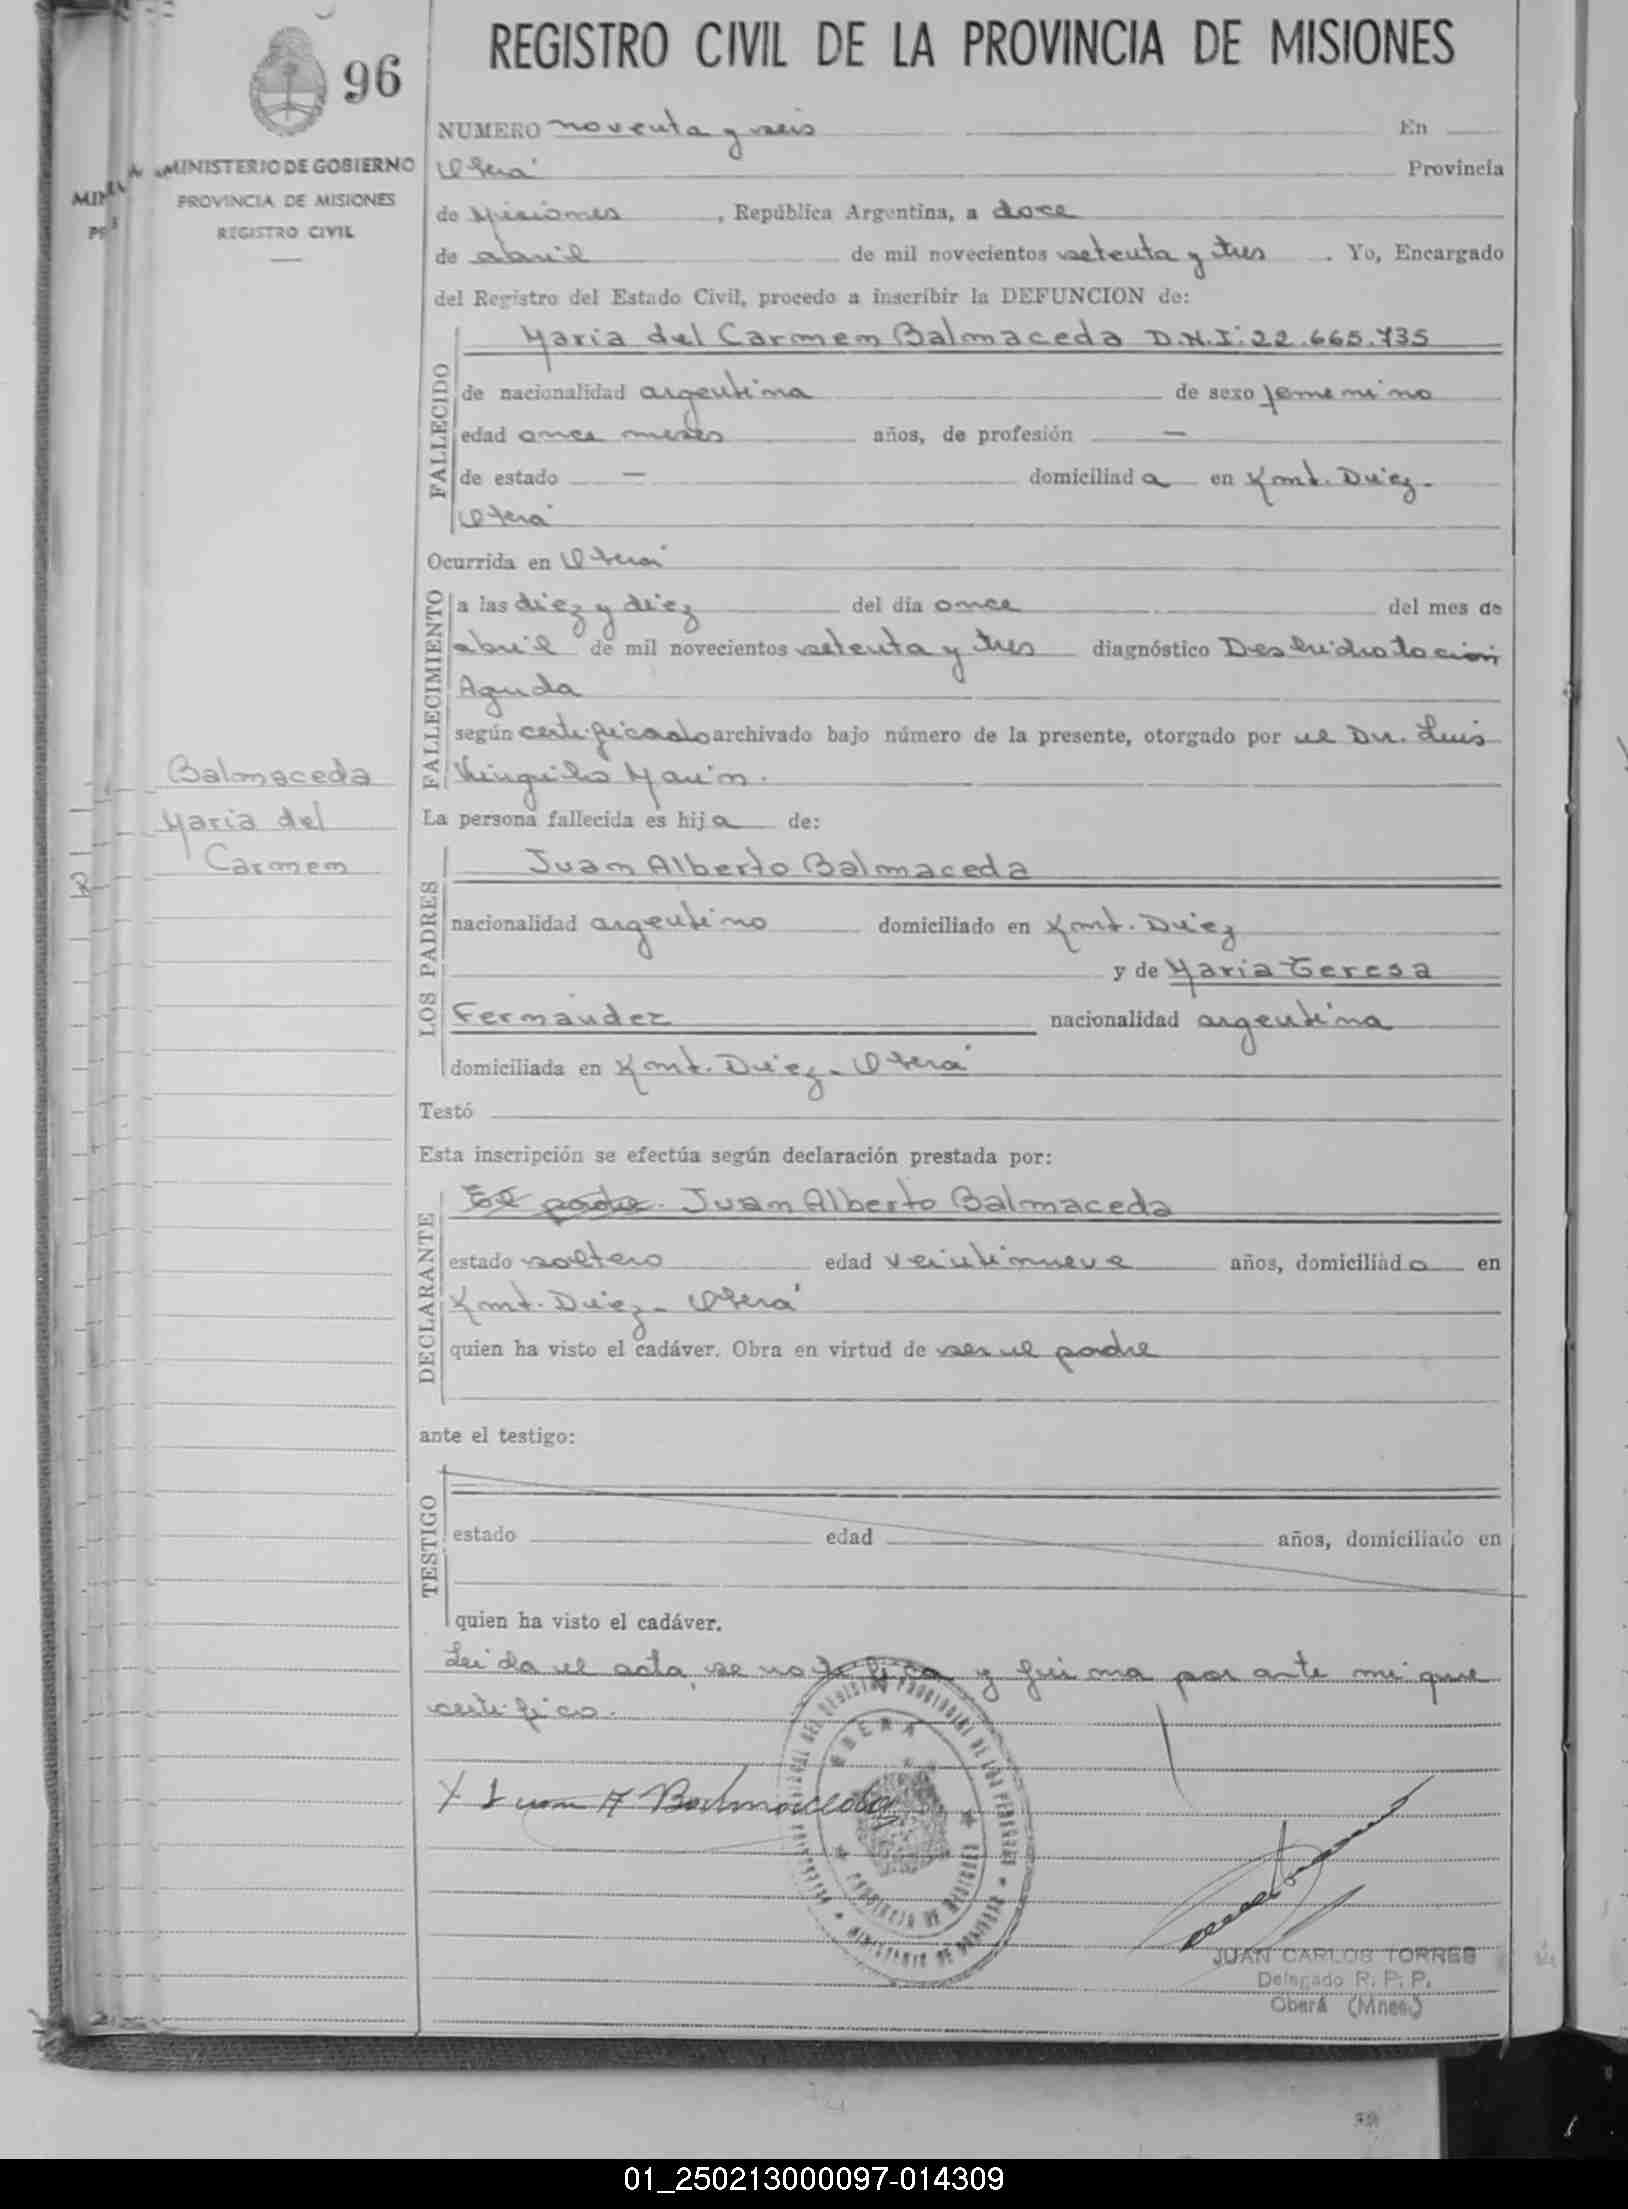 REGISTRO CIVIL DE LA PROVINCIA DE MISIONES
96
MINISTERIO DE GOBIERNO
PROVINCIA DE MISIONES
REGISTRO CIVIL
NUMERO noventa y seis En
Oberá Provincia
de Misiones, República Argentina, a doce
de abril de mil novecientos setenta y tres. Yo, Encargado
del Registro del Estado Civil, procedo a inscribir la DEFUNCION de:
Maria del Carmen Balmaceda D.N.I: 22.665.735
FALLECIDO
de nacionalidad argentina de sexo femenino
edad once meses años, de profesión —
de estado — domiciliada en Kmt. Diez-
Oberá
Ocurrida en Oberá
FALLECIMIENTO
a las diez y diez del día once del mes de
abril de mil novecientos setenta y tres diagnóstico Deshidratación
Aguda
según certificado archivado bajo número de la presente, otorgado por el Dr. Luis
Marin.
Balmaceda
Maria del
Carmen
La persona fallecida es hija de:
LOS PADRES
Juan Alberto Balmaceda
nacionalidad argentino domiciliado en Kmt. Diez
y de Maria Teresa
Fernandez nacionalidad argentina
domiciliada en Kmt. Diez- Oberá
Testó
Esta inscripción se efectúa según declaración prestada por:
DECLARANTE
El padre. Juan Alberto Balmaceda
estado soltero edad veintinueve años, domiciliado en
Kmt. Diez- Oberá
quien ha visto el cadáver. Obra en virtud de ser el padre
ante el testigo:
TESTIGO
estado edad años, domiciliado en
quien ha visto el cadáver.
Leida el acta, se notifica y firma por ante mi que
certifico.
X Juan A Balmaceda
OBERA
PROVINCIA DE MISIONES
JUAN CARLOS TORRES
Delegado R. P. P.
Oberá (Mnes.)
01_250213000097-014309